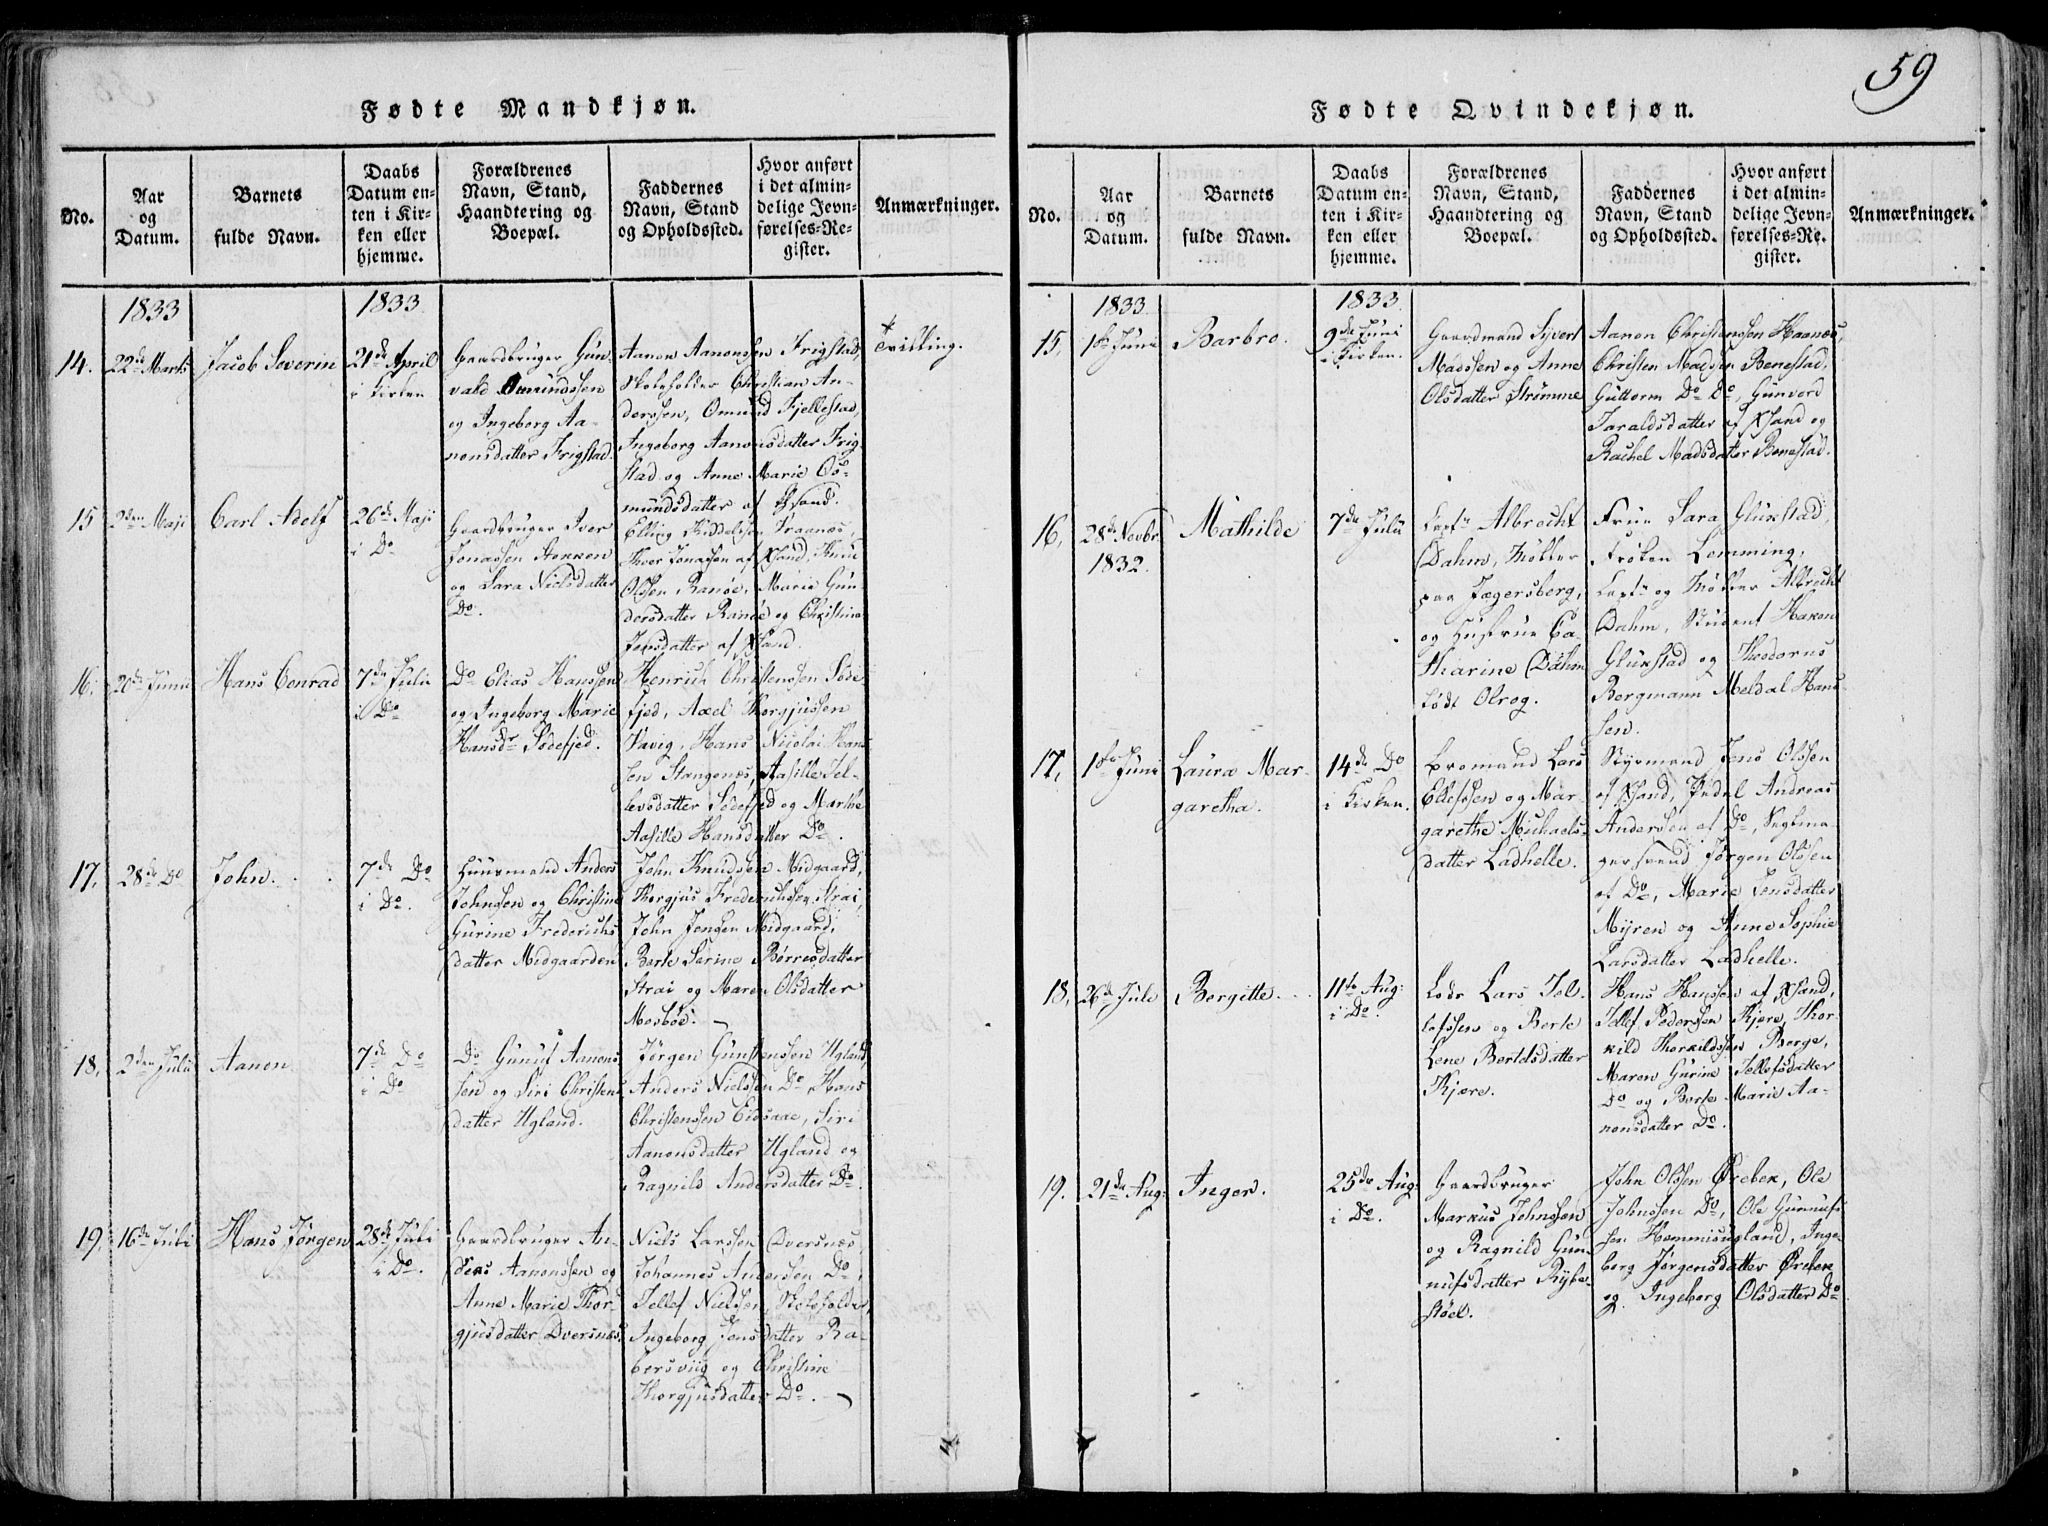 59
Fødte Mandkjøn.
No.
Aar
og
Datum.
Barnets
fulde Navn.
Daabs
Datum en-
ten i Kir-
ken eller
hjemme.
Forældrenes
Navn, Stand,
Haandtering og
Boepæl.
Faddernes
Navn, Stand
og Opholdssted.
Hvor anført
i det almin-
delige Jevn-
førelses-Re-
gister.
Anmærkninger.
1833
1833
14.
22de Marts
Jacob Severin
21de April
i Kirken
Gaardbruger Gun-
vald Omundssen
og Ingeborg Aa-
nonsdatter Frigstad.
Aanon Aanonssen Frigstad,
Skoleholder Christian An-
derssen, Omund Fjellestad,
Ingeborg Aanonsdatter Frig-
stad og Anne Marie Os-
mundsdatter af Xsand.
Tvilling.
15
2den Maji
Carl Adolf
26de Maji
i Do
Gaardbruger Iver
Jonassen Stokken
og Sara Nielsdatter
Do.
Elling Kiddelsen Fraanæs,
Thor Jonassen af Xsand, Knud
Olssen Randøe, Marie Gun-
dersdatter Randøe og Christine
Jensdatter af Xsand.
16.
20de Junii
Hans Conrad
7de Julii
i Do
Do Elias Hanssen
og Ingeborg Marie
Hansdr Sødefjed.
Henrich Christenssen Søde-
fjed, Axel Thorgjussen
Vavig, Hans Nicolai Han-
sen Stangenæs, Aasille Tel-
levsdatter Sødefjed og Marthe
Aasille Hansdatter Do.
17.
28de Do
John
7de Do
i Do.
Huusmand Anders
Johnsen og Christine
Gurine Frederichs-
datter Midgaarden
John Knudssen Midgaard,
Thorgjus Frederichssen Strai,
John Jensen Midgaard,
Berte Sarine Børresdatter
Strai og Maren Olsdatter
Mosbøe.
18.
2den Julii
Aanon
7de Do
i Do
Do Gunuf Aanons-
sen og Siri Christens-
datter Ugland.
Jørgen Gunstenssen Ugland,
Anders Nielssen Do, Hans
Christenssen Eidsaae, Siri
Aanonsdatter Ugland og
Ragnild Andersdatter Do.
19.
16de Juli
Hans Jørgen
28de Juli
i Do.
Gaardbruger An-
ders Aanonssen og
Anne Marie Thor-
gjusdatter Dversnæs.
Niels Larssen Dversnæs,
Johannes Andersen Do,
Tellef Nielsen, Skoleholder,
Ingeborg Jensdatter Ra-
bersviig og Christine
Thorgjusdatter Do.
Fødte Qvindekjøn.
No.
Aar
og
Datum.
Barnets
fulde Navn.
Daabs
Datum en-
ten i Kir-
ken eller
hjemme.
Forældrenes
Navn, Stand,
Haandtering og
Boepæl.
Faddernes
Navn, Stand
og Opholdssted.
Hvor anført
i det almin-
delige Jevn-
førelses-Re-
gister.
Anmærkninger.
1833
1833
15.
1ste Juni
Barbro.
9de Juni
i Kirken.
Gaardmand Syvert
Madssen og Anne
Olsdatter Strømme
Aanon Christenssen Haanæs,
Christen Madssen Benestad,
Guttorm Do Do, Gunvord
Taraldsdatter af Xsand og
Rachel Madsdatter Benestad.
16.
28de Novbr
1832.
Mathilde
7de Julii
Capt: Albrecht
Dahm, Tholder
paa Jægersberg,
og Hustrue Ca-
tharine Dahm
født Olrog.
Frue Sara Glükstad,
Frøken Lemming,
Capt: og Tholder Albrecht
Dahm, Student Hakon
Glükstad og Theodorus
Bergmann Meldal Han-
sen.
17.
1ste Juni
Laura Mar-
garetha.
14de Do
i Kirken.
Bromand Lars
Ellefssen og Mar-
garethe Michaels-
datter Ladhelle.
Styrmand Jens Olssen
af Xsand, Pedel Andreas
Anderssen af Do, Seglma-
gersvend Jørgen Olssen
af Do, Marie Jensdatter
Myren og Anne Sophie
Larsdatter Ladhelle.
18.
26de Juli
Bergitte.
11te Aug:
i Do.
Lods Lars Tel-
lefssen og Berte
Lene Bertelsdatter
Kjære.
Hans Hanssen af Xsand,
Tellef Pederssen Kjære, Thor-
kild Thorkildssen Berge,
Maren Gurine Tellefsdatter
Do og Berte Marie Aa-
nonsdatter Do.
19.
21de Aug:
Inger.
25de Aug:
i Do.
Gaardbruger
Markus Johnssen
og Ragnild Gun-
nufsdatter Rybe-
støel.
John Olssen Ørebek, Ole
Johnssen Do, Ole Gunnufs-
sen Hommisugland, Inge-
berg Jørgensdatter Ørebek
og Ingeborg Olsdatter Do